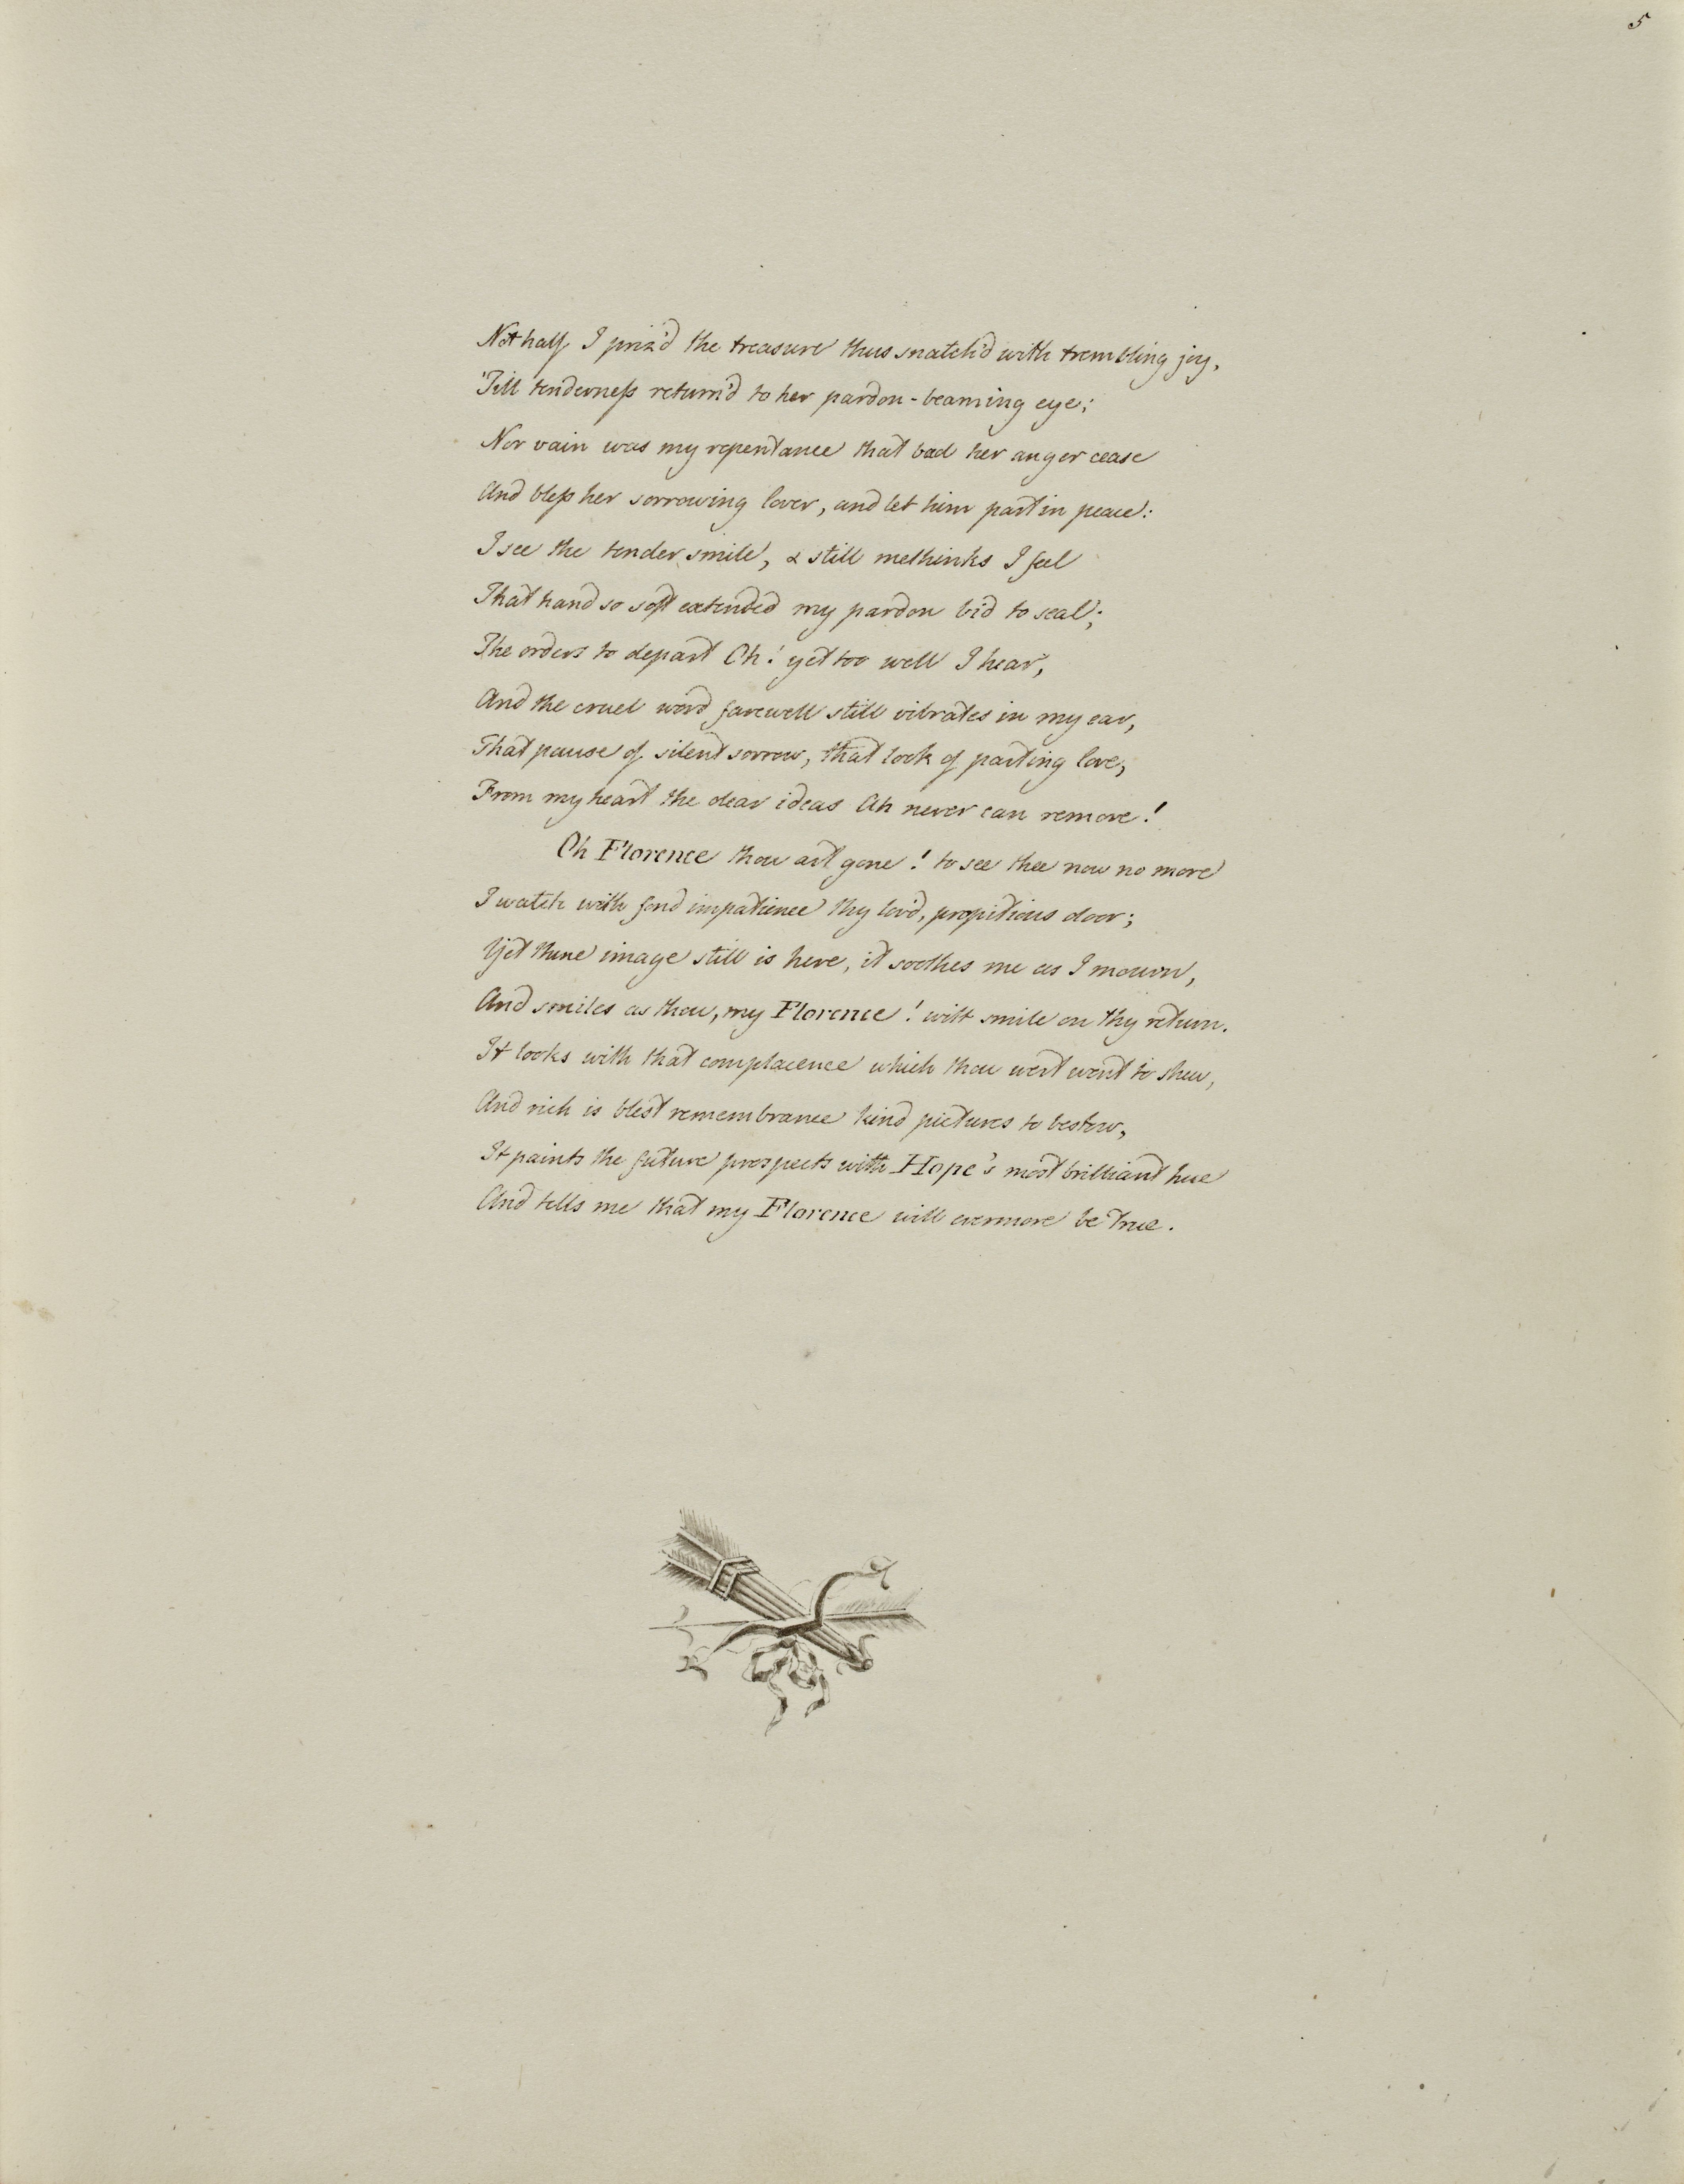 5
Not half I priz'd the treasure thus snatch'd with trembling joy,
'Till tenderness return'd to her pardon-beaming eye;
Nor vain was my repentance that bad her anger cease
And bless her sorrowing lover, and let him part in peace:
I see the tender smile, & still methinks I feel
That hand so soft extended my pardon bid to seal;
The orders to depart Oh! yet too well I hear,
And the cruel word farewell still vibrates in my ear,
That pause of silent sorrow, that look of parting love,
From my heart the dear ideas Ah never can remove!
Oh Florence thou art gone! to see thee now no more
I watch with fond impatience thy lov'd, propitious door;
Yet thine image still is here, it soothes me as I mourn,
And smiles as thou, my Florence! wilt smile on thy return.
It looks with that complacence which thou wert wont to shew,
And rich is blest remembrance kind pictures to bestow,
It paints the future prospects with Hope's most brilliant hue
And tells me that my Florence will evermore be True.